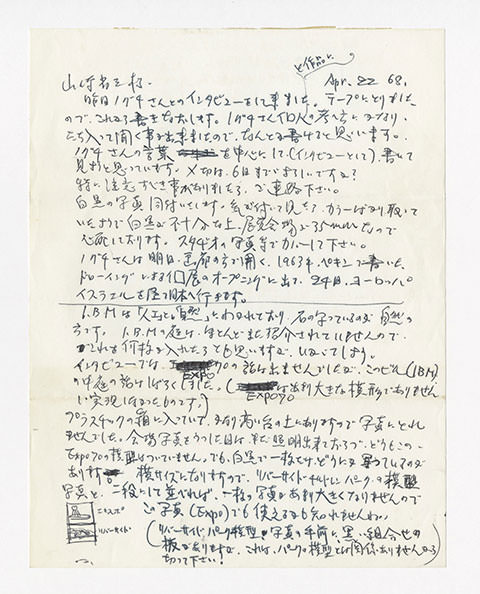 と作品に
Apr. 22 68.
昨日ノグチさんとのインタビューをして来ました。テープにとりました
ので、これから書きなおします。ノグチさん個人の考え方にかなり
たち入って聞く事が出来ましたので、なんとか書けると思います。
ノグチさんの言葉 を中心にして(インタビューとして)、書いて
見ようと思っています。〆切は、6日までよろしいですか?
特に注意すべき事がありましたら、ご連絡下さい。
白黒の写真同封いたします。
いたようで白黒が不十分な上、展覧会場で35mmなので
心配しております。スタヂオの写真等でカバーして下さい。
ノグチさんは明日、 で開く、1963年、ペキンで書いた、
ドローイングによる個展のオープニングに出て、24日、ヨーロッパ
イスラエルを経て日本へ行きます。
I.B.M は「人工」と「自然」にわかれており、石の字っているのが自然の
方です。I.B.M の庭は、ほとんどまだ紹介されていませんので、
これを何枚か入れたらとも思いますが、いかでしょう。
インタビューでは、 EXPO 70 の話は出ませんでしたが、このビル(IBM)
の中庭の話はしばらくしました。( EXPO70 はあまり大きな模形でありません
プラスチックの箱に入っていて、かなり高い台の上にありますので写真にとれ
ませんでした。会場写真をうつした日は、まだ照明出来ておらづ、どうもこの
Expo 70の模型はついていません。でも、白黒で一枚だけ、どうにか写っているのが
あります。 横サイズになりますので、リバーサイド・ パークの模型
写真と、二段にして並べれば、一枚の写真があまり大きくなりませんので
この写真(Expo)でも使えるかも知れませんね。
エキスポ
リバーサイド
(リバーサイド・パーク模型の写真の手前に、黒い組合せの
板がありますが、これは、パークの模型とは関係ありませんから
切って下さい!